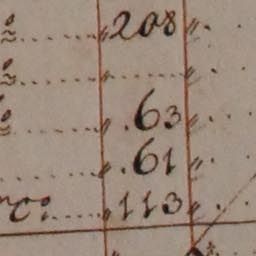 208
63
61
113